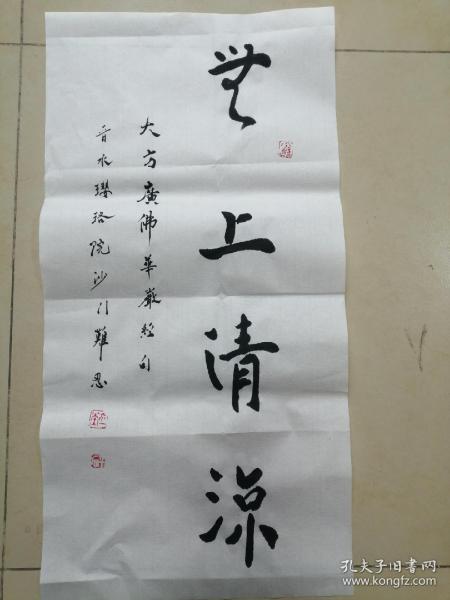 無上清涼
大方廣佛華嚴經句
晉水瓔珞院沙門難思
孔夫子旧书网
www.kongfz.com